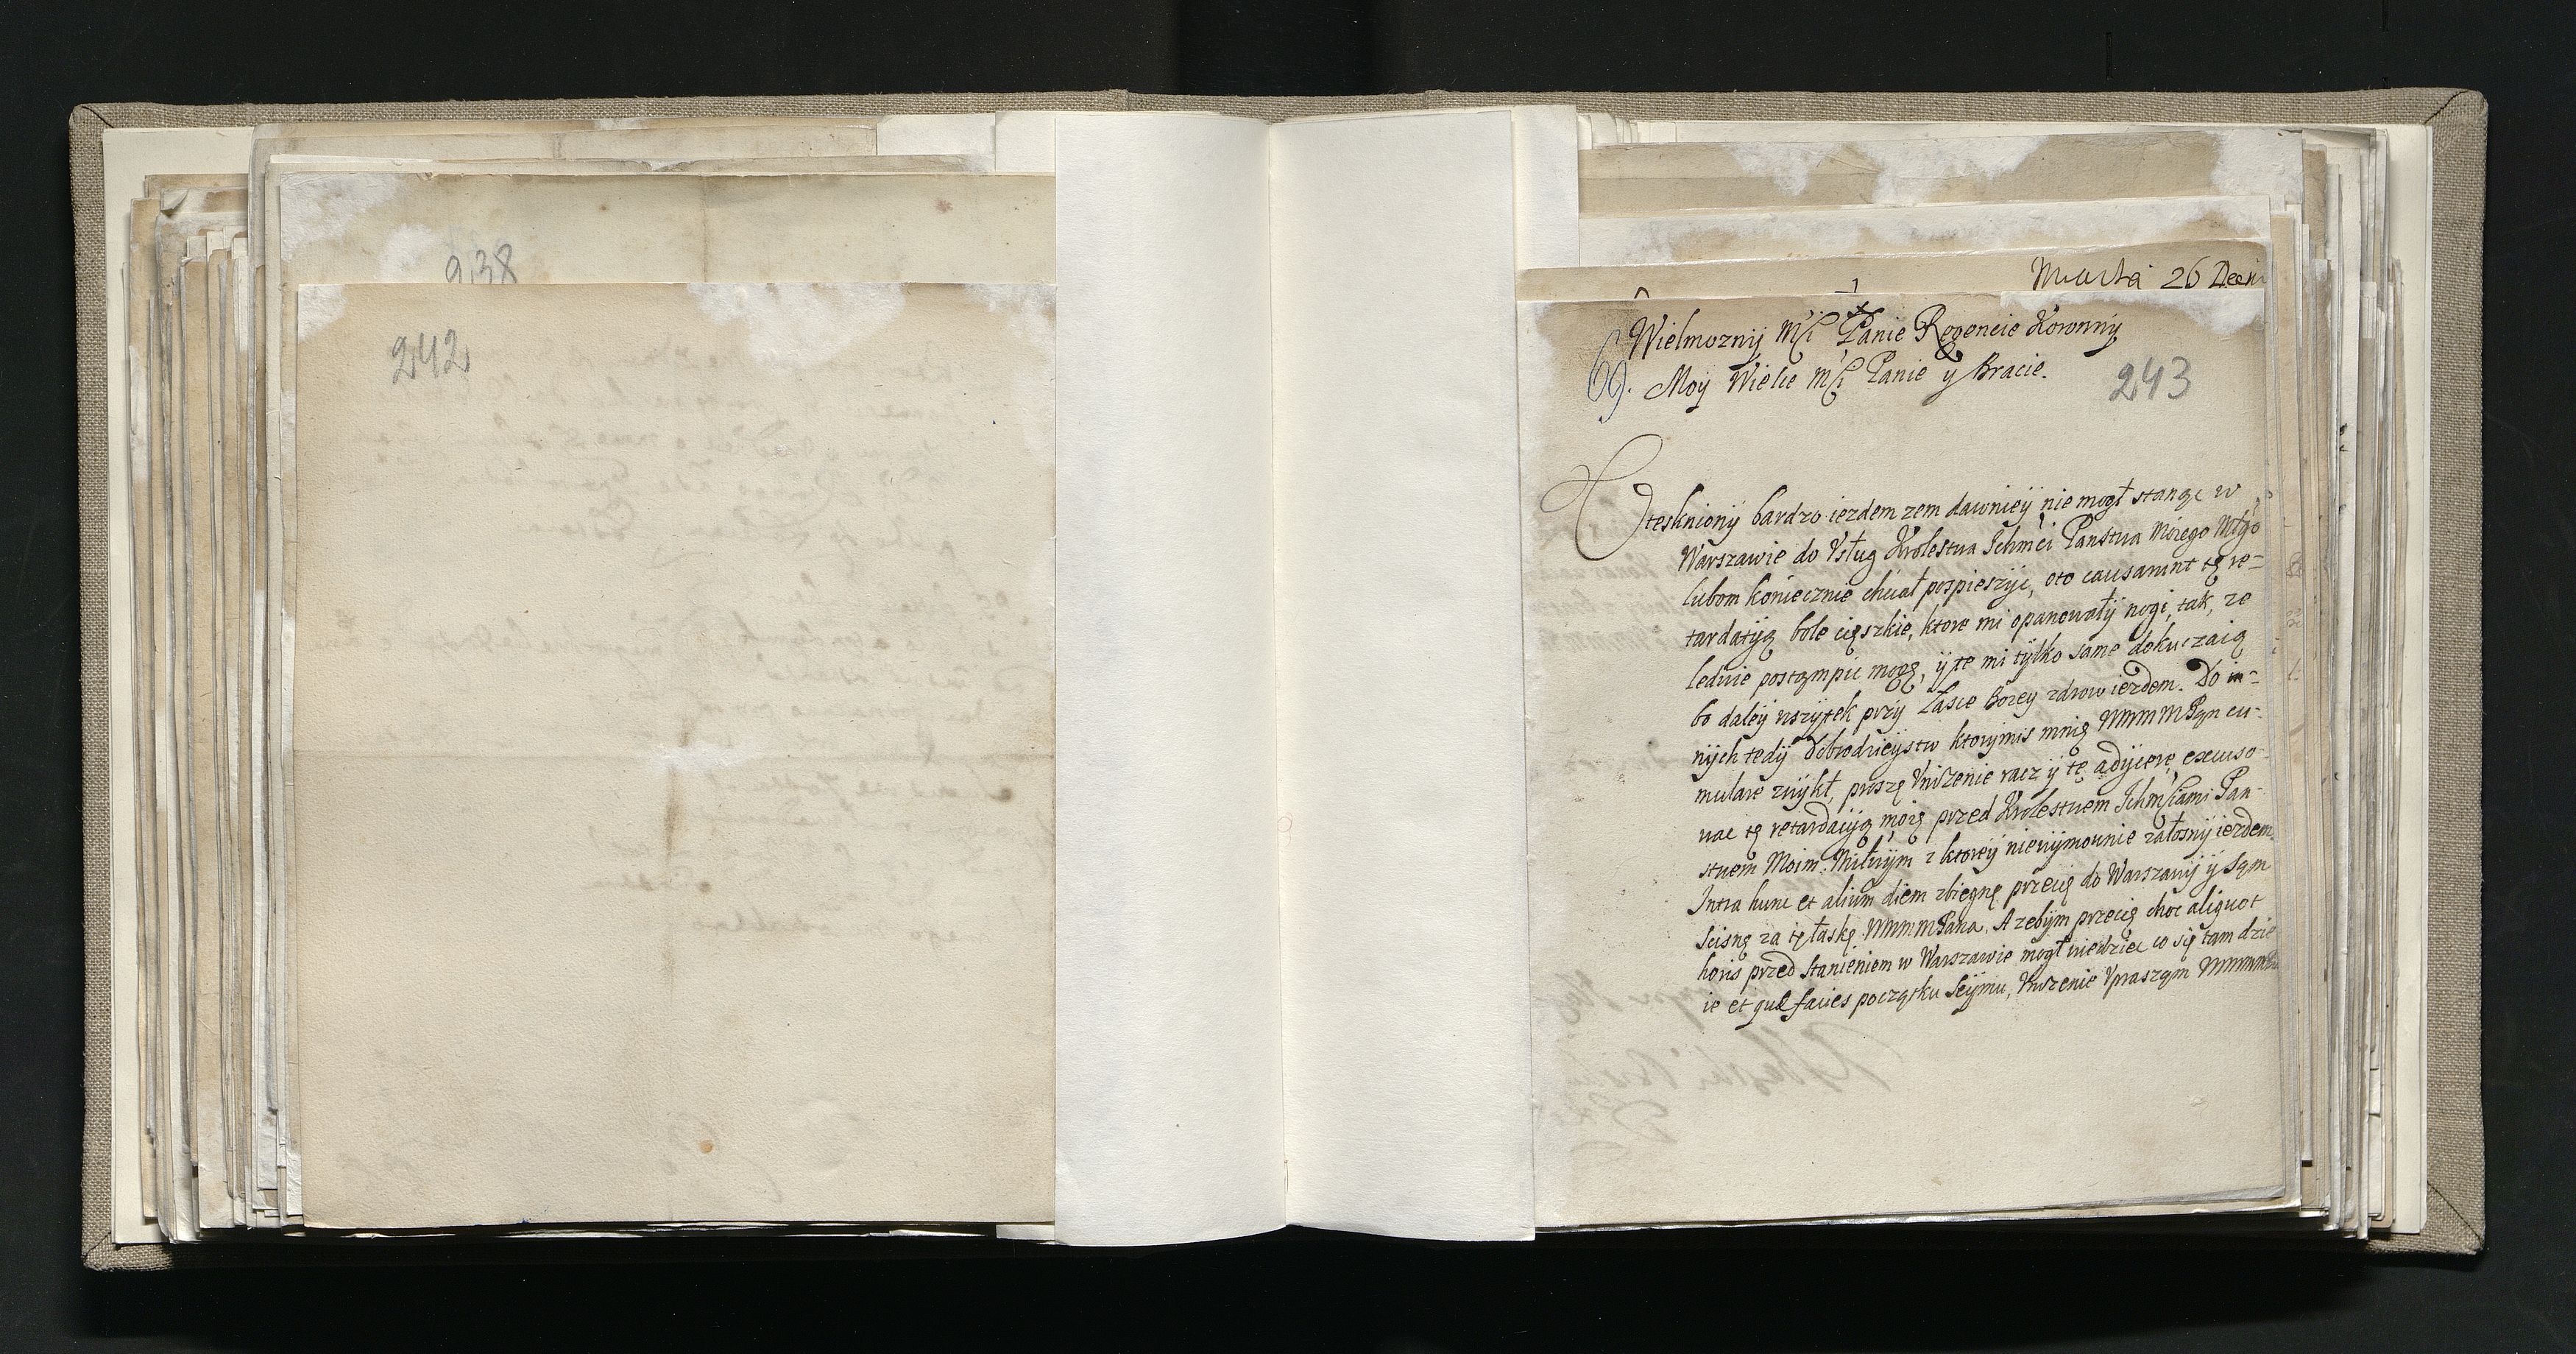 938
242
Marta 26 Decem
Wielmoznÿ Mſci Panie Regencie Koronnÿ
69. Moÿ Wielce Mſci Panie y Bracie.
243
Oteskniony bardzo iezdem zem dawnieÿ nie mogł stanąc w
Warszawie do Vsług Krolestwa Ichmci Panstwa Mo̗iego Młgo
lubom koniecznie chciał pospieszÿc, oto causarunt tę re-
tardatÿą bole cięszkie, ktore mi opanowałÿ nogi, tak, ze
ledwie postąmpic mogę, ÿ te mi tÿlko same dokuczaią
bo daleÿ wszÿtek przÿ Łasce Bozey zdrow iezdem. Do in-
nÿch tedÿ Dobrodzieÿstw ktorymis mnię MmmMPąn cu-
mulare zwÿkł, proszę Vnizenie racz ÿ tę adÿcere, excuso-
wac tę retardacÿą moię przed Krolestwem Ichmſciami Pan-
stwem Moim Miłnÿm z ktoreÿ niewÿmownie załosnÿ iezdem.
Intra hunc et alium diem zbiegnę przecię do Warszawÿ ÿ sąm
scisnę za tę łaskę MmmMPana. A zebÿm przecię choc aliquot
horis przed stanieniem w Warszawie mogł wiedziec co się tam dzie
ie et quæ facies początku Seÿmu, Vnizenie Vprasząm MmmMPa